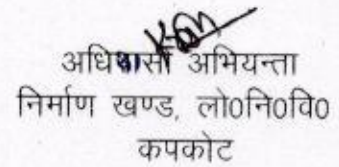 अधिशासी अभियन्ता
निर्माण खण्ड, लो0नि0वि0
कपकोट